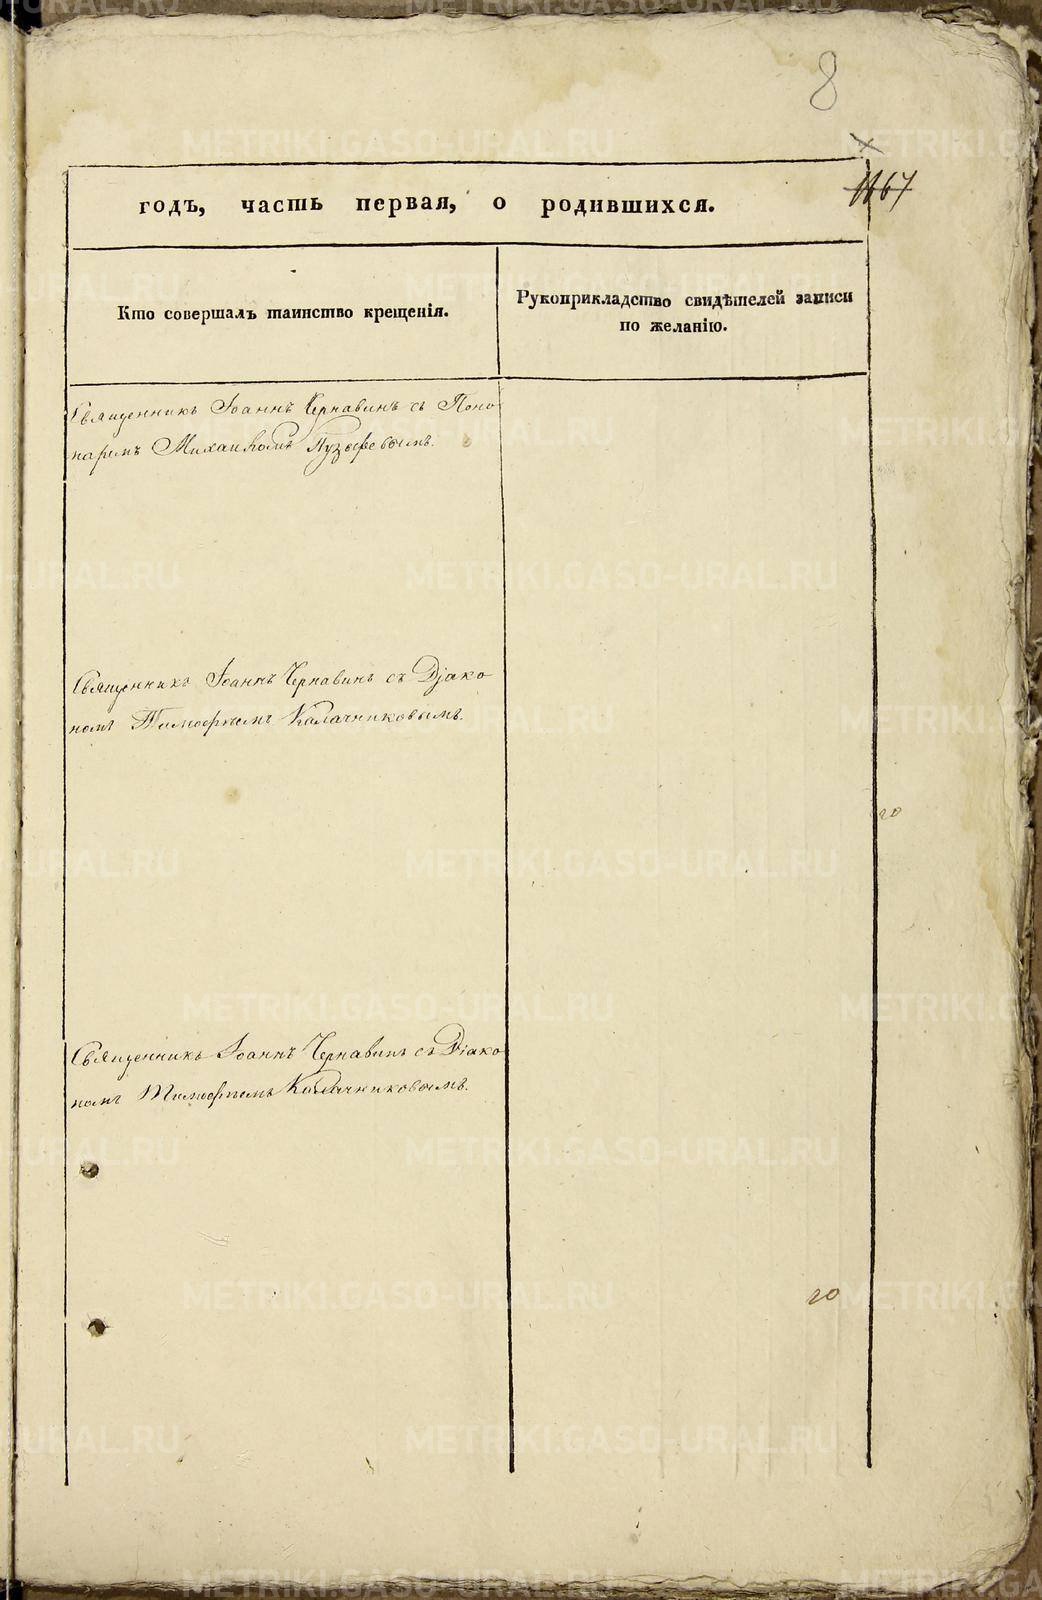 8
1167
годъ, часть первая, о родившихся.
Кто совершалъ таинство крещенія.
Рукоприкладство свидѣтелей записи
по желанію.
Священникъ Іоаннъ Чернавинъ съ Поно
маремъ Михаиломъ Пузыревымъ.
Священникъ Іоаннъ Чернавинъ съ Діако
номъ Тимофѣемъ Калачниковымъ.
го
Священникъ Іоаннъ Чернавинъ съ Діако
номъ Тимофѣемъ Калачниковымъ.
го
METRIKI.GASO-URAL.RU